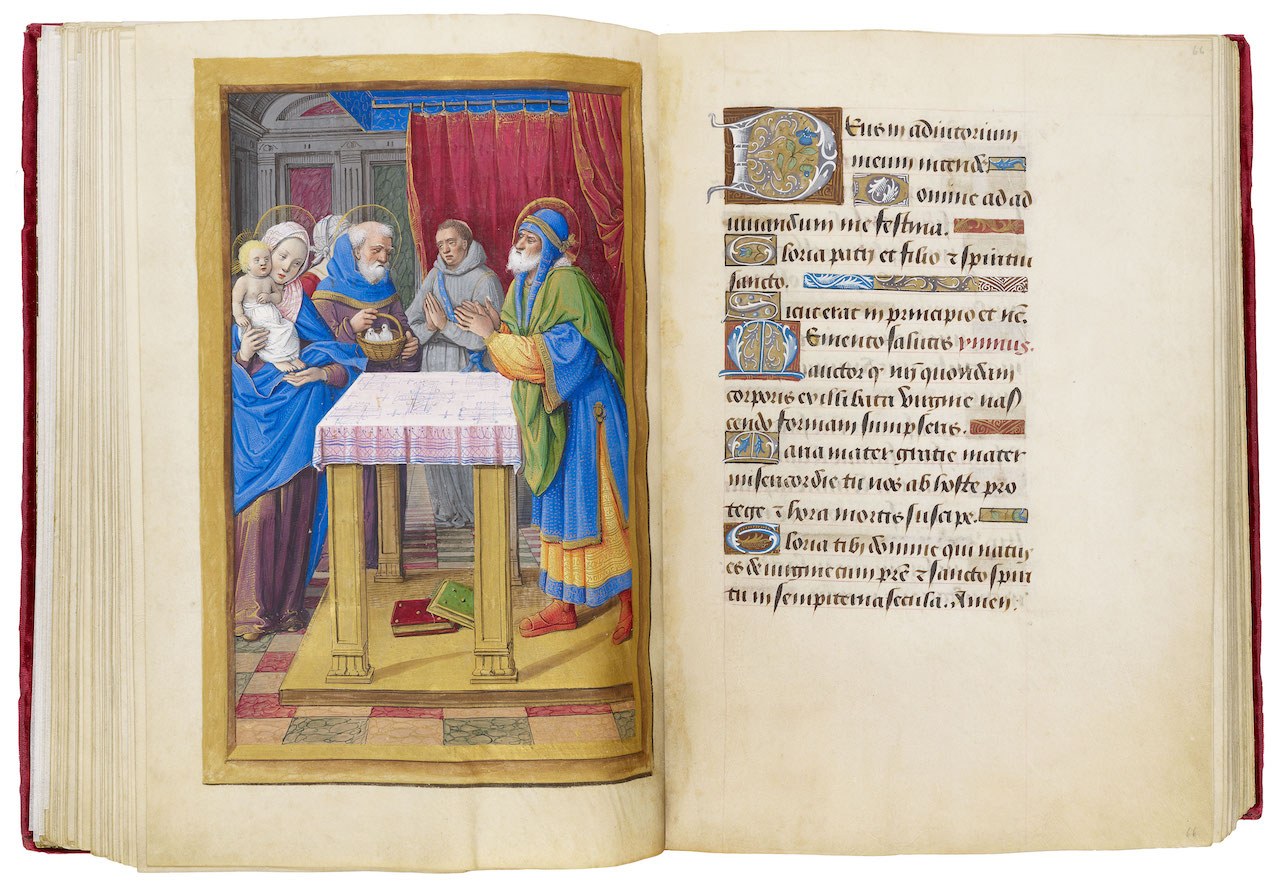 66
Deus in adiutorium
meum intende
Domine ad ad
iuuandum me festina.
Gloria patri et filio ⁊ spiritui
sancto.
Sicut erat in principio et nc̄.
Memento salutis ymnus.
auctor q̵ nr̄i quondam
corporis ex illibata virgine nas
cendo formam sumpseris.
Maria mater gratie mater
misericordie tu nos ab hoste pro
tege ⁊ hora mortis suscipe.
Gloria tibi domine qui natus
es de uirgine cum pr̄e ⁊ sancto spiri
tu in sempiterna secula. Amen.
66